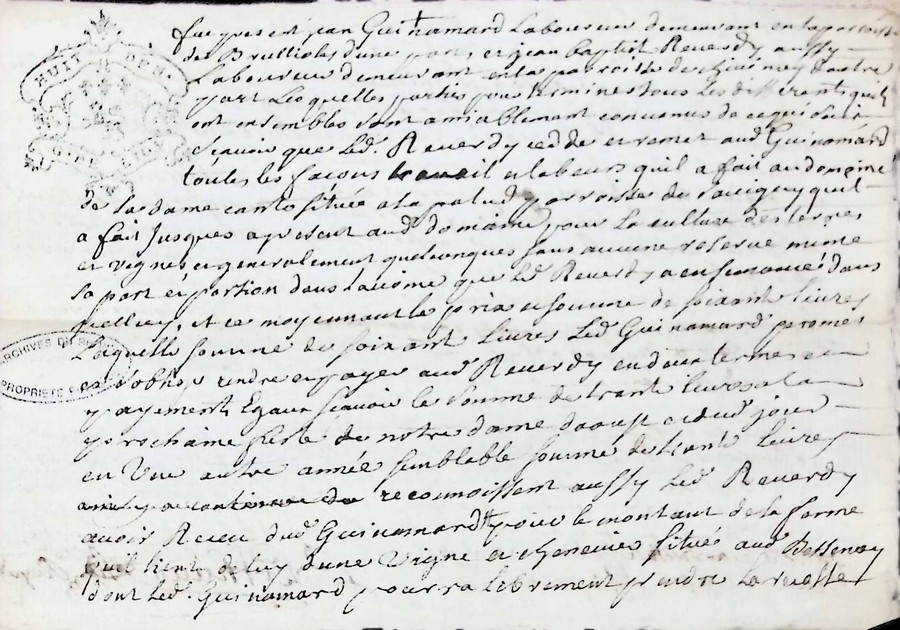 HUIT DEN.
fut present jean Guinamard Laboureur demeurant en la paroisse
de Brullioles d'une part, et jean Baptist Reverdy aussy
Laboureur demeurant en la paroisse de d'autre
part Lesquelles parties pour terminer tous Les differants quil
ont ensembles sont amiablement convenus de ce qui suit
Scavoir que Led. Reverdy cedde et remet aud Guinamard
toutes les façons travail et labeurs quil a fait au domeine
de la dame située a la palud parroisse de Savigny quil
a fait Jusques apresent aud. domaine pour La culture des terres
et vignes et generalement quelconques sans aucune reserve meme
sa part et portion dans que Led Reverdy a ensemancé dans
icelluy, et ce moyennant le prix et somme de soixante livres
Laquelle somme de soixant Livres Led. Guinamard promet
et s'oblige rendre et payer aud Reverdy en deux termes et
payement Egaux scavoir la somme de trante livres a la
prochaine feste de notre dame daoust et dud jour
en Une autre année semblable somme de trante livres
reconnoissent aussy Led Reverdy
avoir Receu dud Guinamard pour le montant de la ferme
quil tient de luy d'une Vigne et cheneviere située aud Bessenay
dont Led. Guinamard pourra librement prendre La recolte
ARCHIVES DU RHONE
PROPRIETE